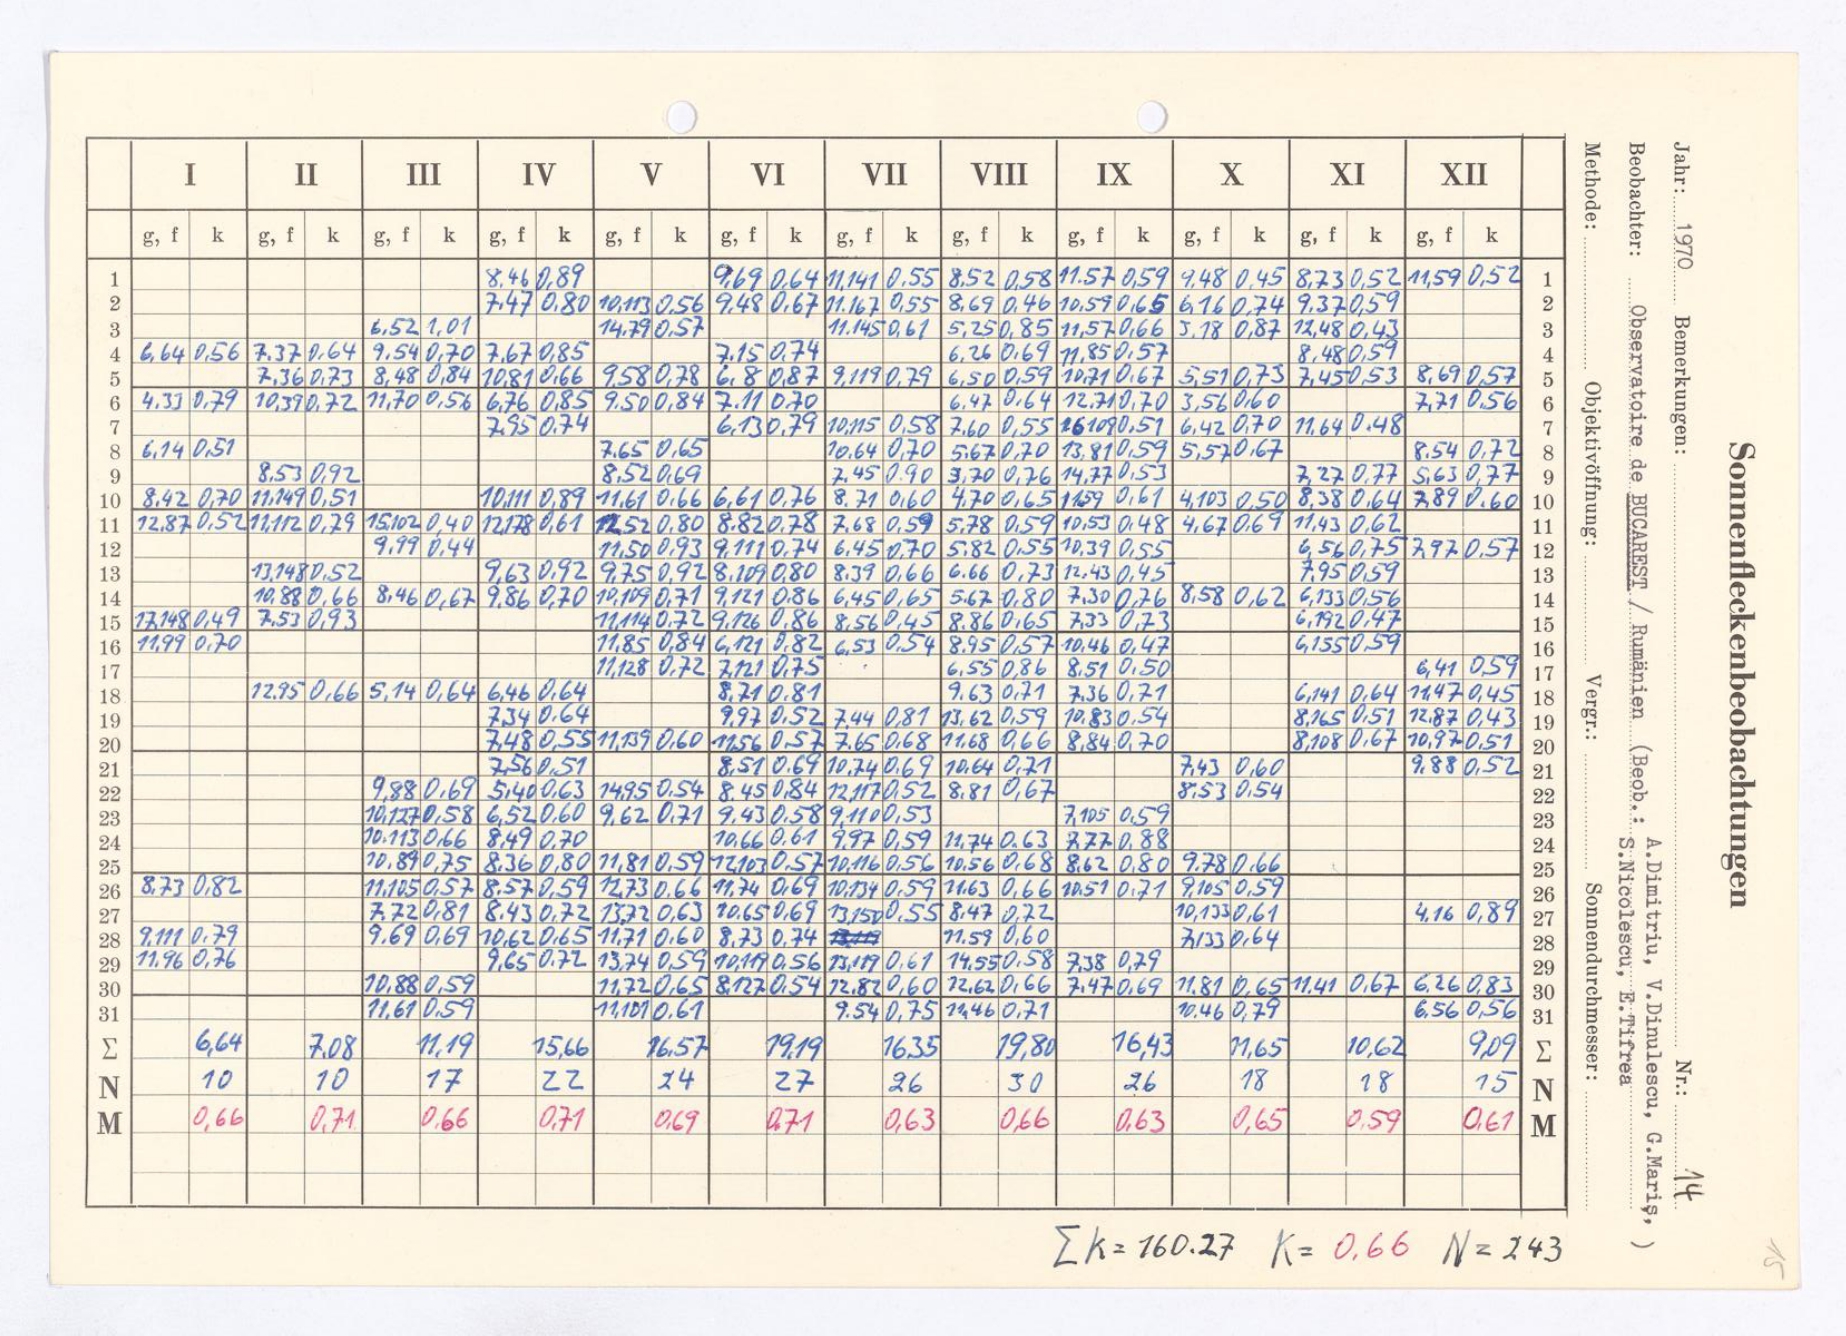 Sonnenfleckenbeobachtungen
Jahr: 1970 Bemerkungen: Nr.: 14
Beobachter: Observatoire de BUCAREST / Rumänien (Beob.: A.Dimitriu, V.Dinulescu, G.Mariş, S.Nicolescu, E.Tifrea )
Methode: Objektivöffnung: Vergr.: Sonnendurchmesser:
I II III IV V VI VII VIII IX X XI XII
g, f k g, f k g, f k g, f k g, f k g, f k g, f k g, f k g, f k g, f k g, f k g, f k
1 8.46 0,89 9,69 0,64 11,141 0.55 8.52 0,58 11.57 0,59 9,48 0,45 8,73 0,52 11,59 0,52 1
2 7.47 0,80 10,113 0,56 9,48 0,67 11.167 0,55 8,69 0,46 10,59 0,65 6,16 0,74 9.37 0,59 2
3 6,52 1,01 14,79 0.57 11.145 0,61 5,25 0,85 11,57 0,66 5,18 0,87 12,48 0,43 3
4 6,64 0,56 7.37 0.64 9.54 0,70 7,67 0,85 7.15 0,74 6,26 0.69 11,85 0,57 8,48 0,59 4
5 7,36 0,73 8,48 0,84 10,81 0,66 9,58 0,78 6,8 0,87 9,119 0,79 6,50 0,59 10,71 0,67 5,51 0,73 7,45 0,53 8,69 0,57 5
6 4.33 0,79 10,39 0,72 11,70 0,56 6,76 0,85 9.50 0,84 7.11 0,70 6,47 0,64 12.71 0,70 3,56 0,60 7,71 0.56 6
7 7,95 0.74 6,13 0,79 10,115 0,58 7.60 0,55 16109 0.51 6,42 0,70 11,64 0.48 7
8 6,14 0,51 7.65 0,65 10.64 0,70 5.67 0,70 13,81 0,59 5,57 0,67 8.54 0,72 8
9 8.53 0,92 8.52 0,69 7.45 0.90 3,70 0,76 14,77 0,53 7,27 0,77 5,63 0,77 9
10 8.42 0,70 11,149 0,51 10,111 0,89 11,61 0.66 6,61 0,76 8.71 0,60 4.70 0,65 1159 0,61 4,103 0,50 8,38 0,64 7,89 0.60 10
11 12,87 0,52 11,112 0,79 15,102 0,40 12,178 0,61 12,52 0,80 8.82 0.78 7.68 0,59 5,78 0,59 10,53 0.48 4,67 0,69 11,43 0,62 11
12 9,99 0.44 11,50 0,93 9,111 0,74 6,45 0,70 5,82 0,55 10,39 0,55 6,56 0,75 7,97 0,57 12
13 13,148 0,52 9,63 0,92 9,75 0,92 8,109 0,80 8.39 0,66 6.66 0,73 12,43 0,45 7,95 0,59 13
14 10,88 0,66 8,46 0,67 9,86 0,70 10,109 0,71 9,121 0.86 6,45 0,65 5.67 0,80 7,30 0,76 8,58 0,62 6,133 0,56 14
15 17,148 0,49 7.53 0,93 11,114 0,72 9,126 0,86 8,56 0,45 8.86 0,65 7,33 0,73 6,192 0,47 15
16 11,99 0,70 11,85 0,84 6,121 0,82 6,53 0,54 8.95 0,57 10,46 0,47 6,155 0,59 16
17 11,128 0,72 7,121 0,75 6,55 0,86 8,51 0,50 6,41 0,59 17
18 12.95 0,66 5,14 0,64 6,46 0,64 8,71 0,81 9.63 0,71 7.36 0,71 6,141 0,64 11,47 0,45 18
19 7,34 0.64 9,97 0,52 7,44 0,81 13,62 0,59 10,83 0,54 8,165 0,51 12,87 0,43 19
20 7,48 0,55 11,139 0,60 11,56 0,57 7.65 0,68 11.68 0,66 8,84 0,70 8,108 0,67 10,97 0,51 20
21 7,56 0,51 8,51 0,69 10,74 0,69 10,64 0,71 7,43 0,60 9,88 0,52 21
22 9,88 0,69 5,40 0,63 14,95 0,54 8.45 0,84 12,117 0,52 8.81 0,67 8,53 0,54 22
23 10,127 0,58 6,52 0,60 9,62 0,71 9,43 0,58 9,110 0,53 7,105 0,59 23
24 10.113 0,66 8,49 0,70 10.66 0.61 9,97 0,59 11,74 0.63 7,77 0.88 24
25 10,89 0,75 8.36 0,80 11,81 0,59 12,103 0,57 10,116 0,56 10,56 0,68 8.62 0,80 9,78 0,66 25
26 8,73 0,82 11,105 0,57 8,57 0,59 12,73 0.66 11,74 0,69 10,134 0,59 11.63 0,66 10.51 0,71 9,105 0,59 26
27 7.72 0,81 8.43 0,72 13,72 0,63 10.65 0,69 13,150 0,55 8,47 0,72 10,133 0,61 4,16 0,89 27
28 9,111 0,79 9.69 0,69 10,62 0,65 11,71 0,60 8,73 0,74 11.59 0,60 7,133 0,64 28
29 11.96 0,76 9,65 0.72 13,74 0,59 10,119 0.56 13,119 0,61 14,55 0.58 7,38 0,79 29
30 10,88 0,59 11,72 0,65 8,127 0,54 12,82 0,60 12,62 0,66 7,47 0,69 11.81 0,65 11.41 0,67 6,26 0,83 30
31 11,61 0,59 11,101 0,61 9.54 0,75 11,46 0,71 10.46 0,79 6,56 0,56 31
Σ 6,64 7,08 11,19 15,66 16,57 19,19 16,35 19,80 16,43 11,65 10,62 9,09 Σ
N 10 10 17 22 24 27 26 30 26 18 18 15 N
M 0,66 0,71 0,66 0,71 0,69 0,71 0,63 0,66 0,63 0,65 0,59 0,61 M
Σk = 160.27 K = 0,66 N = 243
15